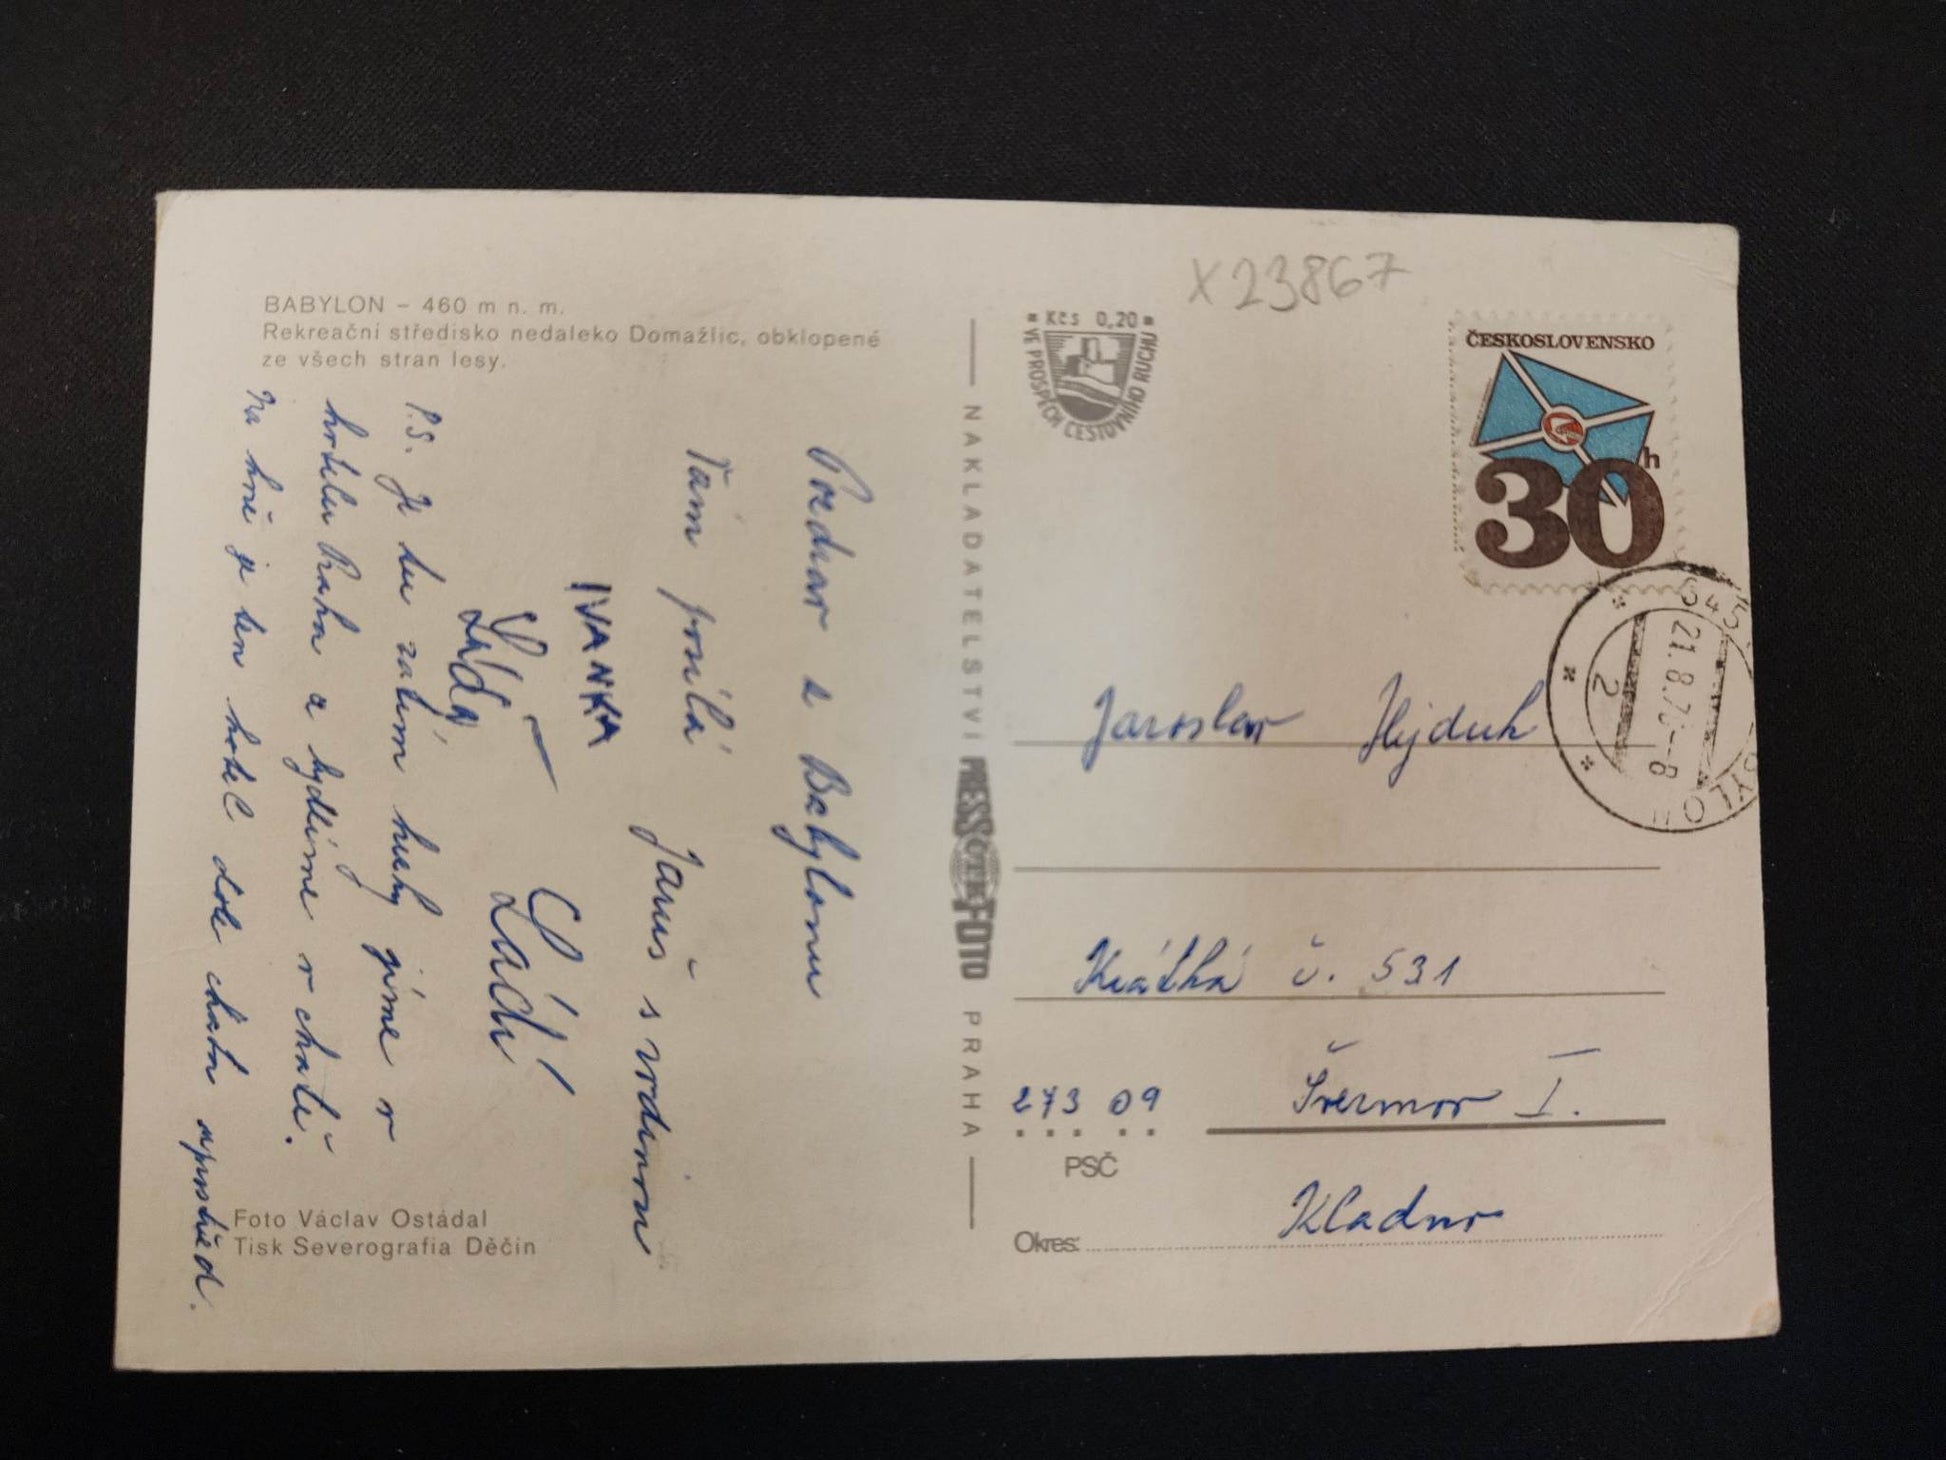 BABYLON – 460 m n. m.
Rekreační středisko nedaleko Domažlic, obklopené
ze všech stran lesy.
Pozdrav z Babylonu
Vám posílá
Jaruš s rodinou
IVANKA
Láďa
Ládi
P.S. Je tu zatím hezky jíme v
hotelu Praha a bydlíme v chatě.
Na hoře je ten hotel dole chata uprostřed.
Foto Václav Ostádal
Tisk Severografia Děčín
NAKLADATELSTVÍ PRESSFOTO PRAHA
ČTK
X23867
Kčs 0,20
VE PROSPĚCH CESTOVNÍHO RUCHU
ČESKOSLOVENSKO
30h
21.8.7 -8
2
Jaroslav Hejduk
Krátká č. 531
273 09 Švermov I.
PSČ
Okres: Kladno